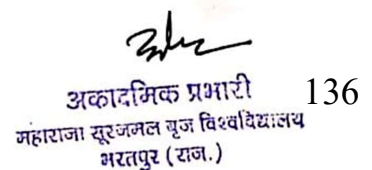 अकादमिक प्रभारी 136
महाराजा सूरजमल बृज विश्वविद्यालय
भरतपुर (राज.)